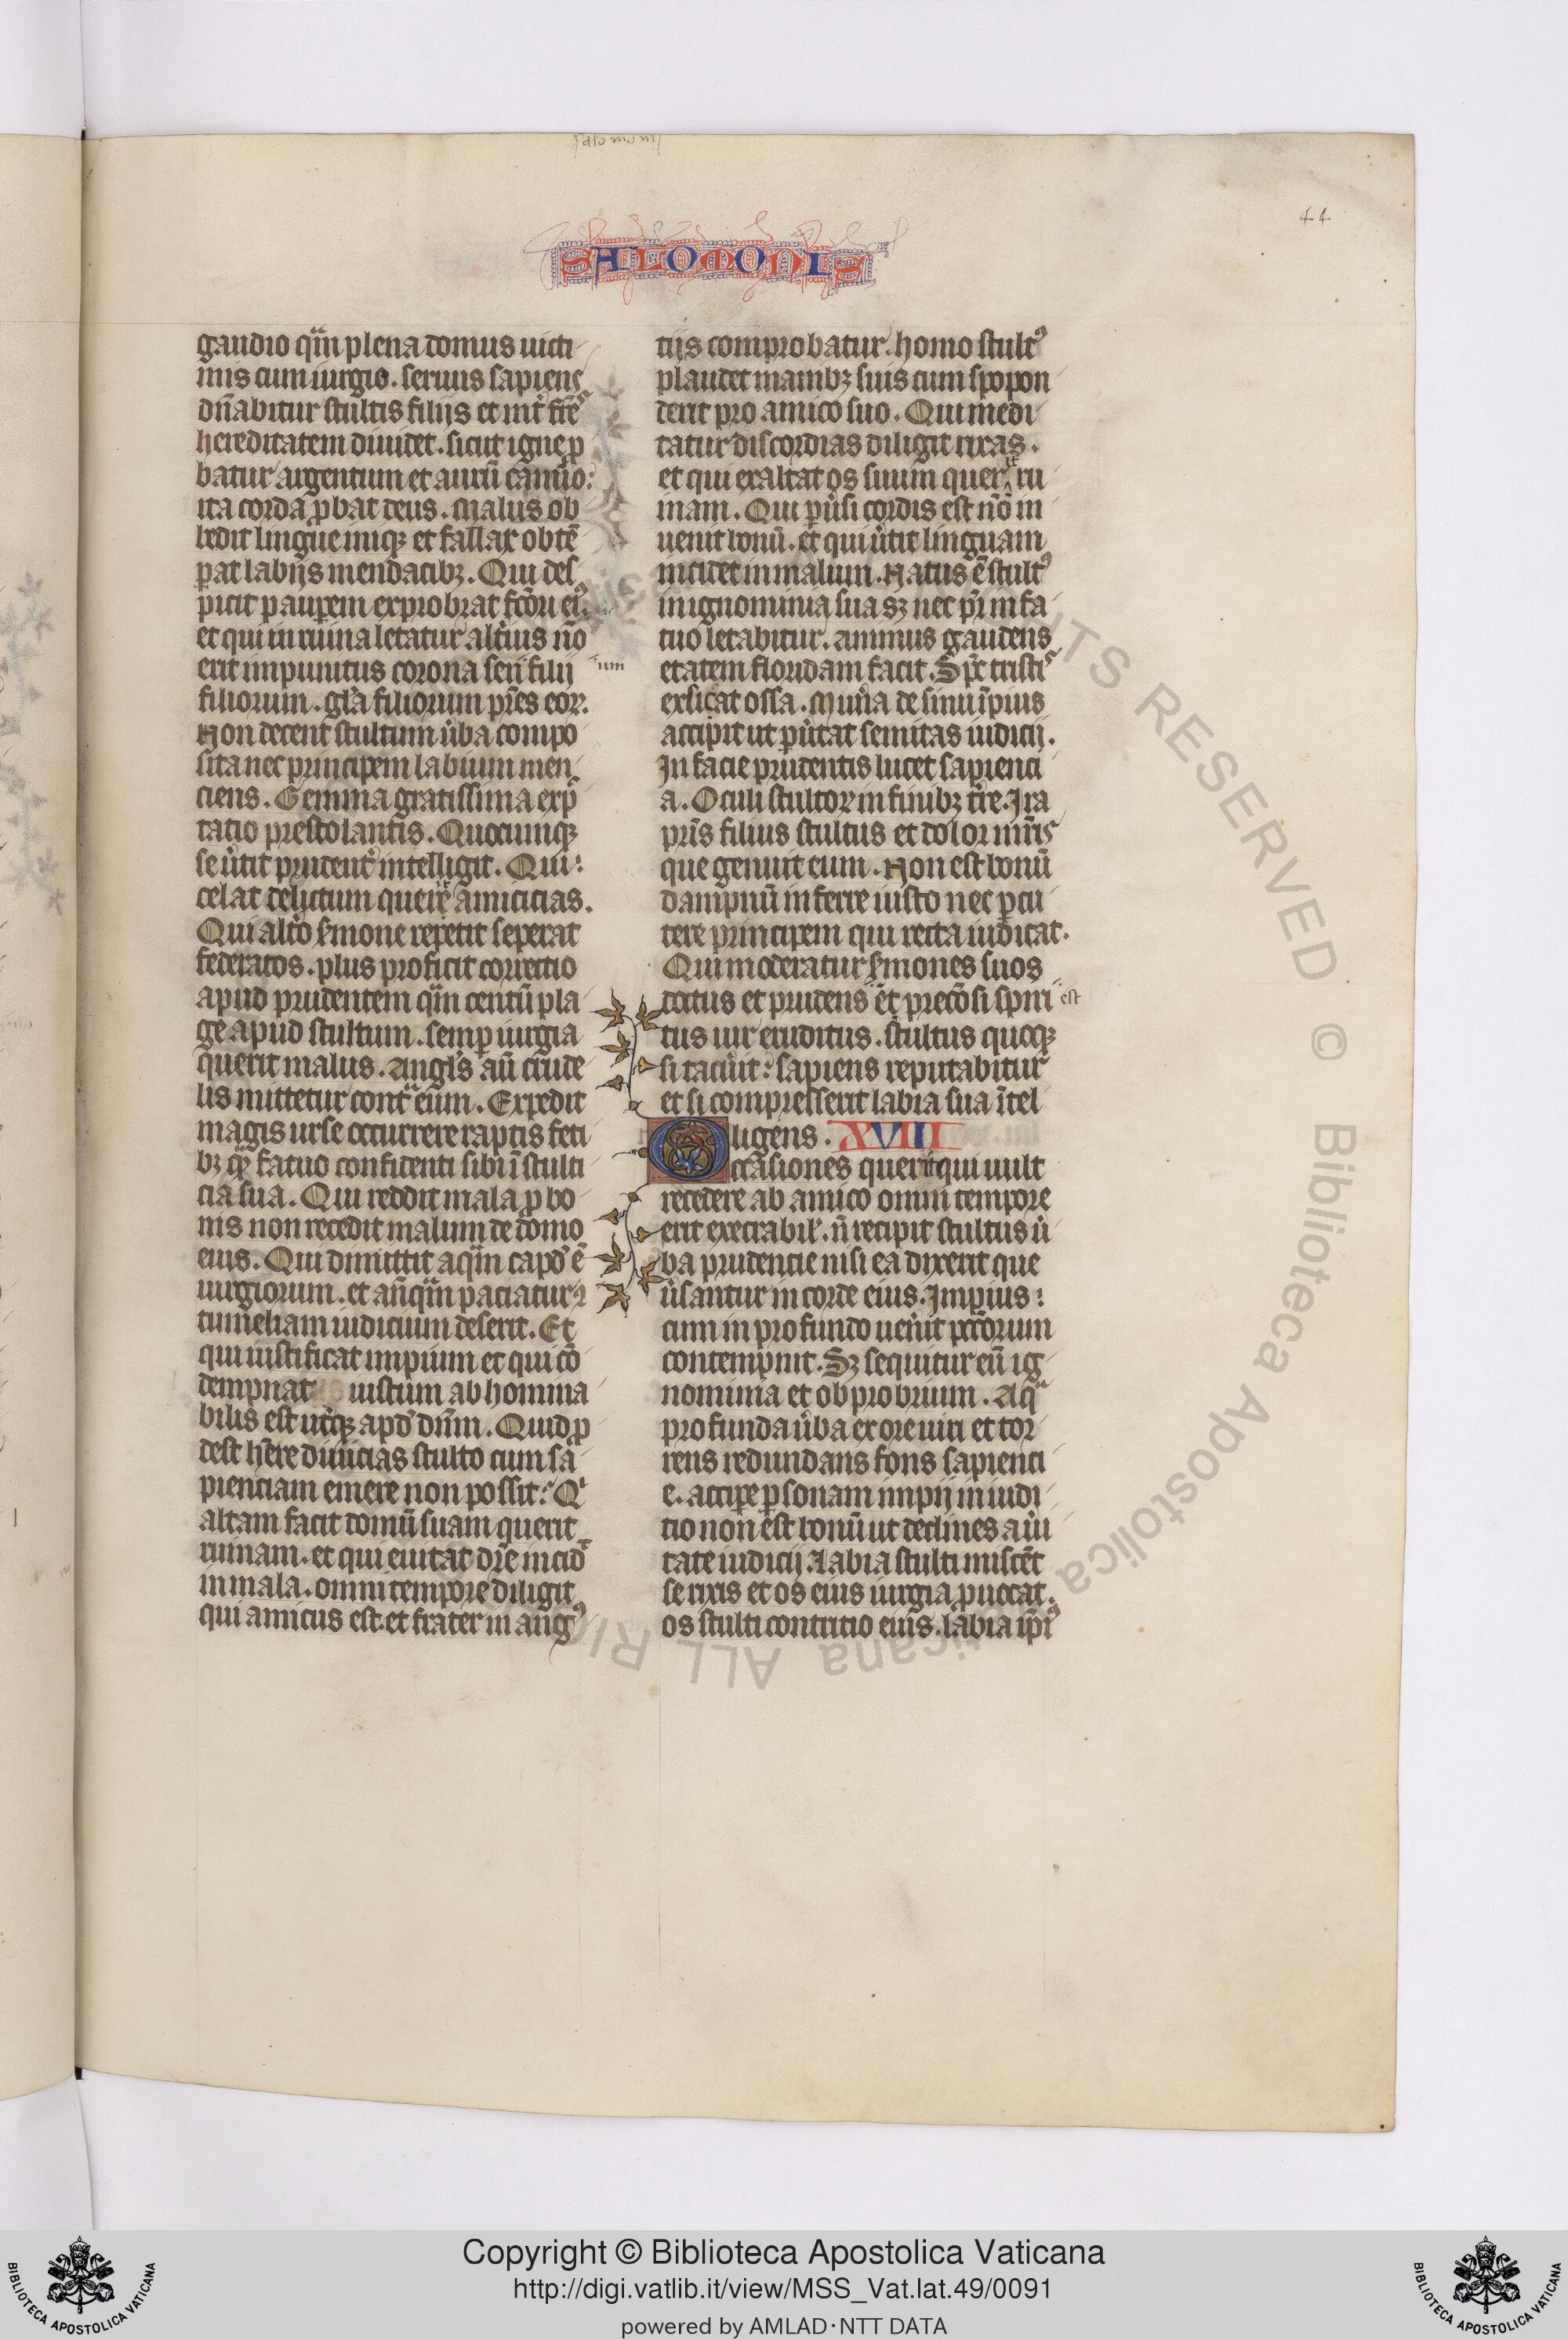 salomonis
44
SALOMONIS
gaudio qͣm plena domus uicti
mis cum iurgio. seruus sapiens
dn̄abitur stultis filijs et int̄ fr̄es
hereditatem diuidet. sicut igne ꝓ
batur argentum et aurū camino:
ita corda ꝓbat deus. Malus ob
ledit lingue iniqꝫ et fallax obtē
ꝑat labijs mendacibꝫ. Qui des
picit pauꝑem exprobrat fc̄ori eiꝰ.
et qui in ruina letatur alt̄ius nō
erit impunitus corona sen̄ filij
ium
filiorum. gl̄a filiorum pr̄es eoꝝ.
Non decent stultum ūba compo
sita nec principem labium men
ciens. Gemma gratissima exp̄
tatio prestolantis. Quocumqꝫ
se ūtit prudent̄ intelligit. Qui:
celat delictum querit amicicias.
Qui alt̄o s̄mone repetit seperat
federatos. plus proficit correctio
apud prudentem qͣm centū pla
ge apud stultum. semꝑ iurgia
querit malus. Angl̄s aū crude
lis mittetur contͣ eum. Expedit
magis urse occurrere raptis feti
bꝫ qͣꝫ fatuo confidenti sibi ī stulti
cia sua. Qui reddit mala ꝓ bo
nis non recedit malum de domo
eius. Qui dimittit aqͣm capd̄ ē
iurgiorum. et an̄qͣm paciatur ꝯ
tumeliam iudicium deserit. Et
qui iustificat impium et qui cō
dempnat iustum abhomina
bilis est ut̄qꝫ apd̄ dn̄m. Quid ꝓ
dest hēre diuicias stulto cum sa
pienciam emere non possit: Qͥ
altam facit domū suam querit
ruinam. et qui euitat dr̄e incid̄
in mala. omni tempore diligit
qui amicus est. et frater in angꝰ
tijs comprobatur. homo stultꝰ
plaudet manibꝫ suis cum spopon
derit pro amico suo. Qui medi
tatur discordias diligit rixas.
et qui exaltat os suum querit ru
inam. Qui ꝑūsi cordis est nō in
uenit bonū. et qui ūtit linguam
incidet in malum. Natus ē stultꝰ
in ignominia sua sꝫ nec pr̄ in fa
tuo letabitur. Animus gaudens
etatem floridam facit. Sp̄c tristis
exsicat ossa. Mun̄a de sinu īpius
accipit ut ꝑūtat semitas iudicij.
In facie prudentis lucet sapienci
a. Oculi stultoꝝ in finibꝫ t̄re. Ira
pr̄is filius stultus et dolor mr̄is
que genuit eum. Non est bonū
dampnū inferre iusto nec ꝑcu
tere principem qui recta iudicat.
Qui moderatur s̄mones suos
doctus et prudens ēt precōsi spiri
est
tus uir eruditus. stultus quoqꝫ
si tacūit: sapiens reputabitur
et si compresserit labia sua ītel
ligens. XVIII
Occasiones querit qui uult
recedere ab amico omni tempore
erit execrabil̄. n̄ recipit stultus ū
ba prudencie nisi ea dixerit que
ūsantur in corde eius. Impius:
cum in profundo uen̄it pcc̄orum
contempnit. Sꝫ sequitur eū ig
nominia et obprobrium. Aqͣ
profunda ūba ex ore uiri et tor
rens redundans fons sapienci
e. accipe ꝑsonam impij in iudi
cio non est bonū ut declines a ūi
tate iudicij. Labia stulti miscēt
se rixis et os eius iurgia ꝓuocat.
os stulti contritio eius. labia ip̄iꝰ
Biblioteca Apostolica Vaticana ALL RIGHTS RESERVED ©
Copyright © Biblioteca Apostolica Vaticana
http://digi.vatlib.it/view/MSS_Vat.lat.49/0091
powered by AMLAD·NTT DATA
BIBLIOTECA APOSTOLICA VATICANA
BIBLIOTECA APOSTOLICA VATICANA